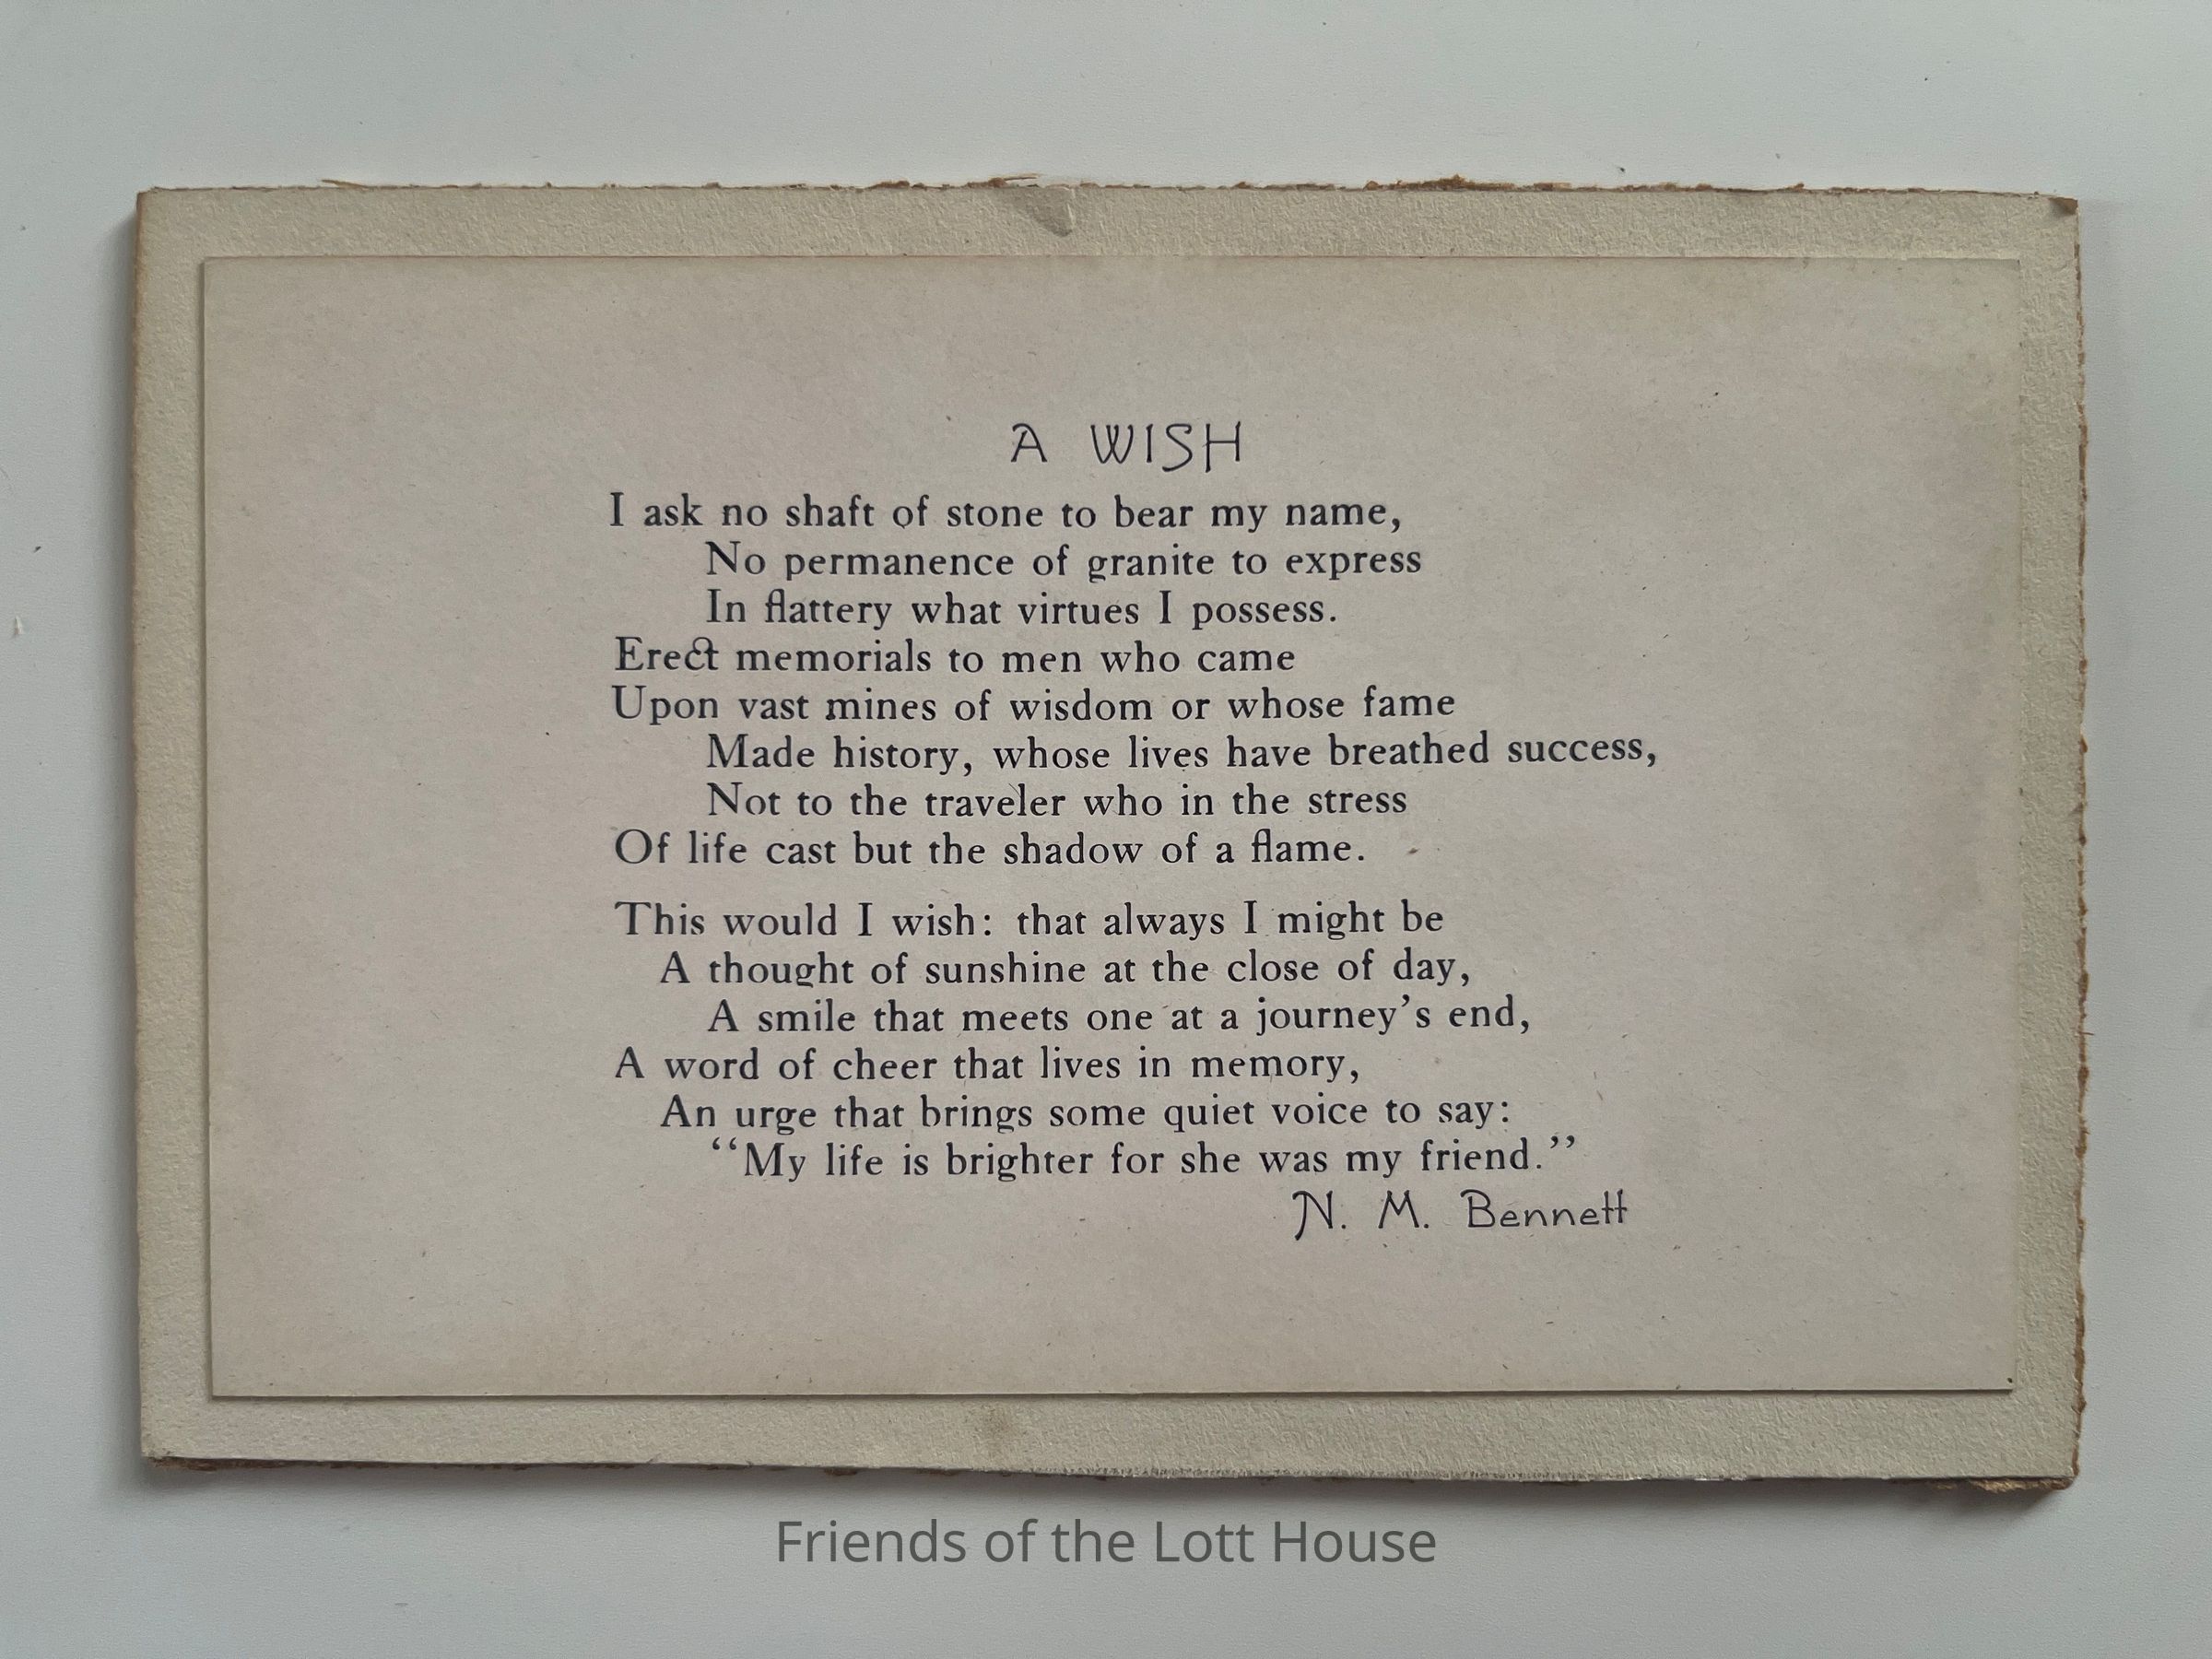 A WISH
I ask no shaft of stone to bear my name,
No permanence of granite to express
In flattery what virtues I possess.
Erect memorials to men who came
Upon vast mines of wisdom or whose fame
Made history, whose lives have breathed success,
Not to the traveler who in the stress
Of life cast but the shadow of a flame.
This would I wish: that always I might be
A thought of sunshine at the close of day,
A smile that meets one at a journey's end,
A word of cheer that lives in memory,
An urge that brings some quiet voice to say:
“My life is brighter for she was my friend.”
N. M. Bennett
Friends of the Lott House